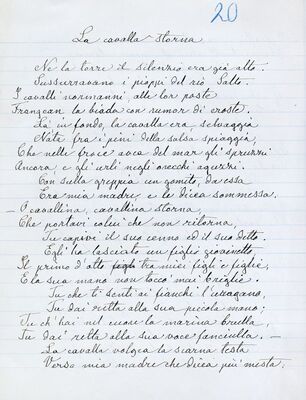 20
La cavalla storna
Ne la torre il silenzio era già alto.
Sussurravano i pioppi del rio Salto.
I cavalli normanni alle lor poste
Frangean la biada con rumor di croste.
Là in fondo, la cavalla era, selvaggia
Nata fra i pini della salsa spiaggia,
Che nelle froge avea del mar gli spruzzi
Ancora, e gli urli negli orecchi aguzzi.
Con sulla greppia un gomito, da essa
Era mia madre e le dicea sommessa.
— O cavallina, cavallina storna,
Che portavi colui che non ritorna,
Tu capivi il suo cenno ed il suo detto.
Egli ha lasciato un figlio giovinetto,
Il primo d'otto tra miei figli e figlie,
E la sua mano non toccò mai briglie.
Tu che ti senti ai fianchi l'uragano,
Tu dai retta alla sua piccola mano;
Tu ch'hai nel cuore la marina brulla,
Tu dai retta alla sua voce fanciulla. —
La cavalla volgea la scarna testa
Verso mia madre che dicea più mesta: